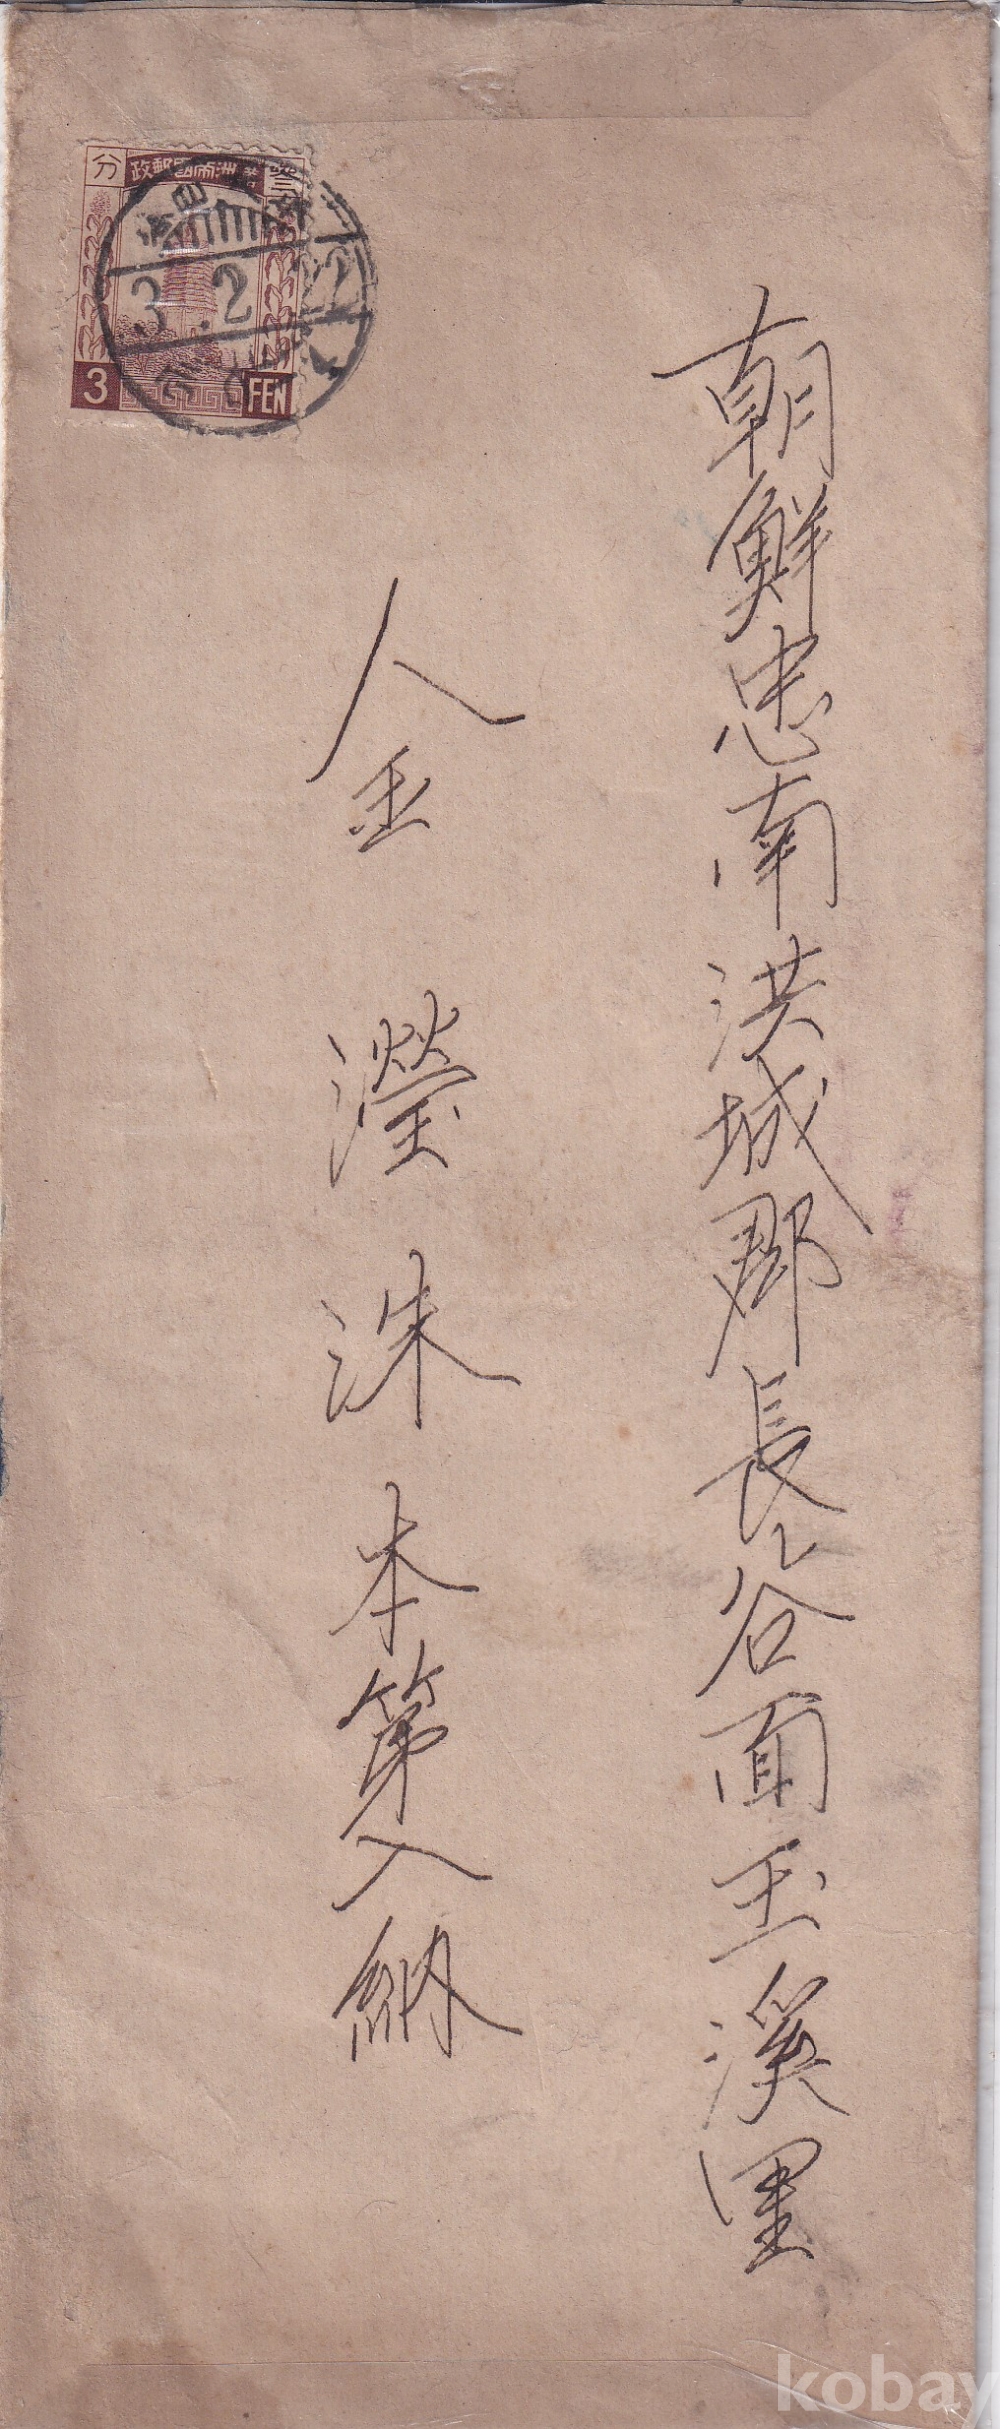 朝鮮忠南洪城郡長谷面玉溪里
金瀅洙本第入納
分 滿洲帝國郵政 叄
3 FEN
3.2.22
kobay